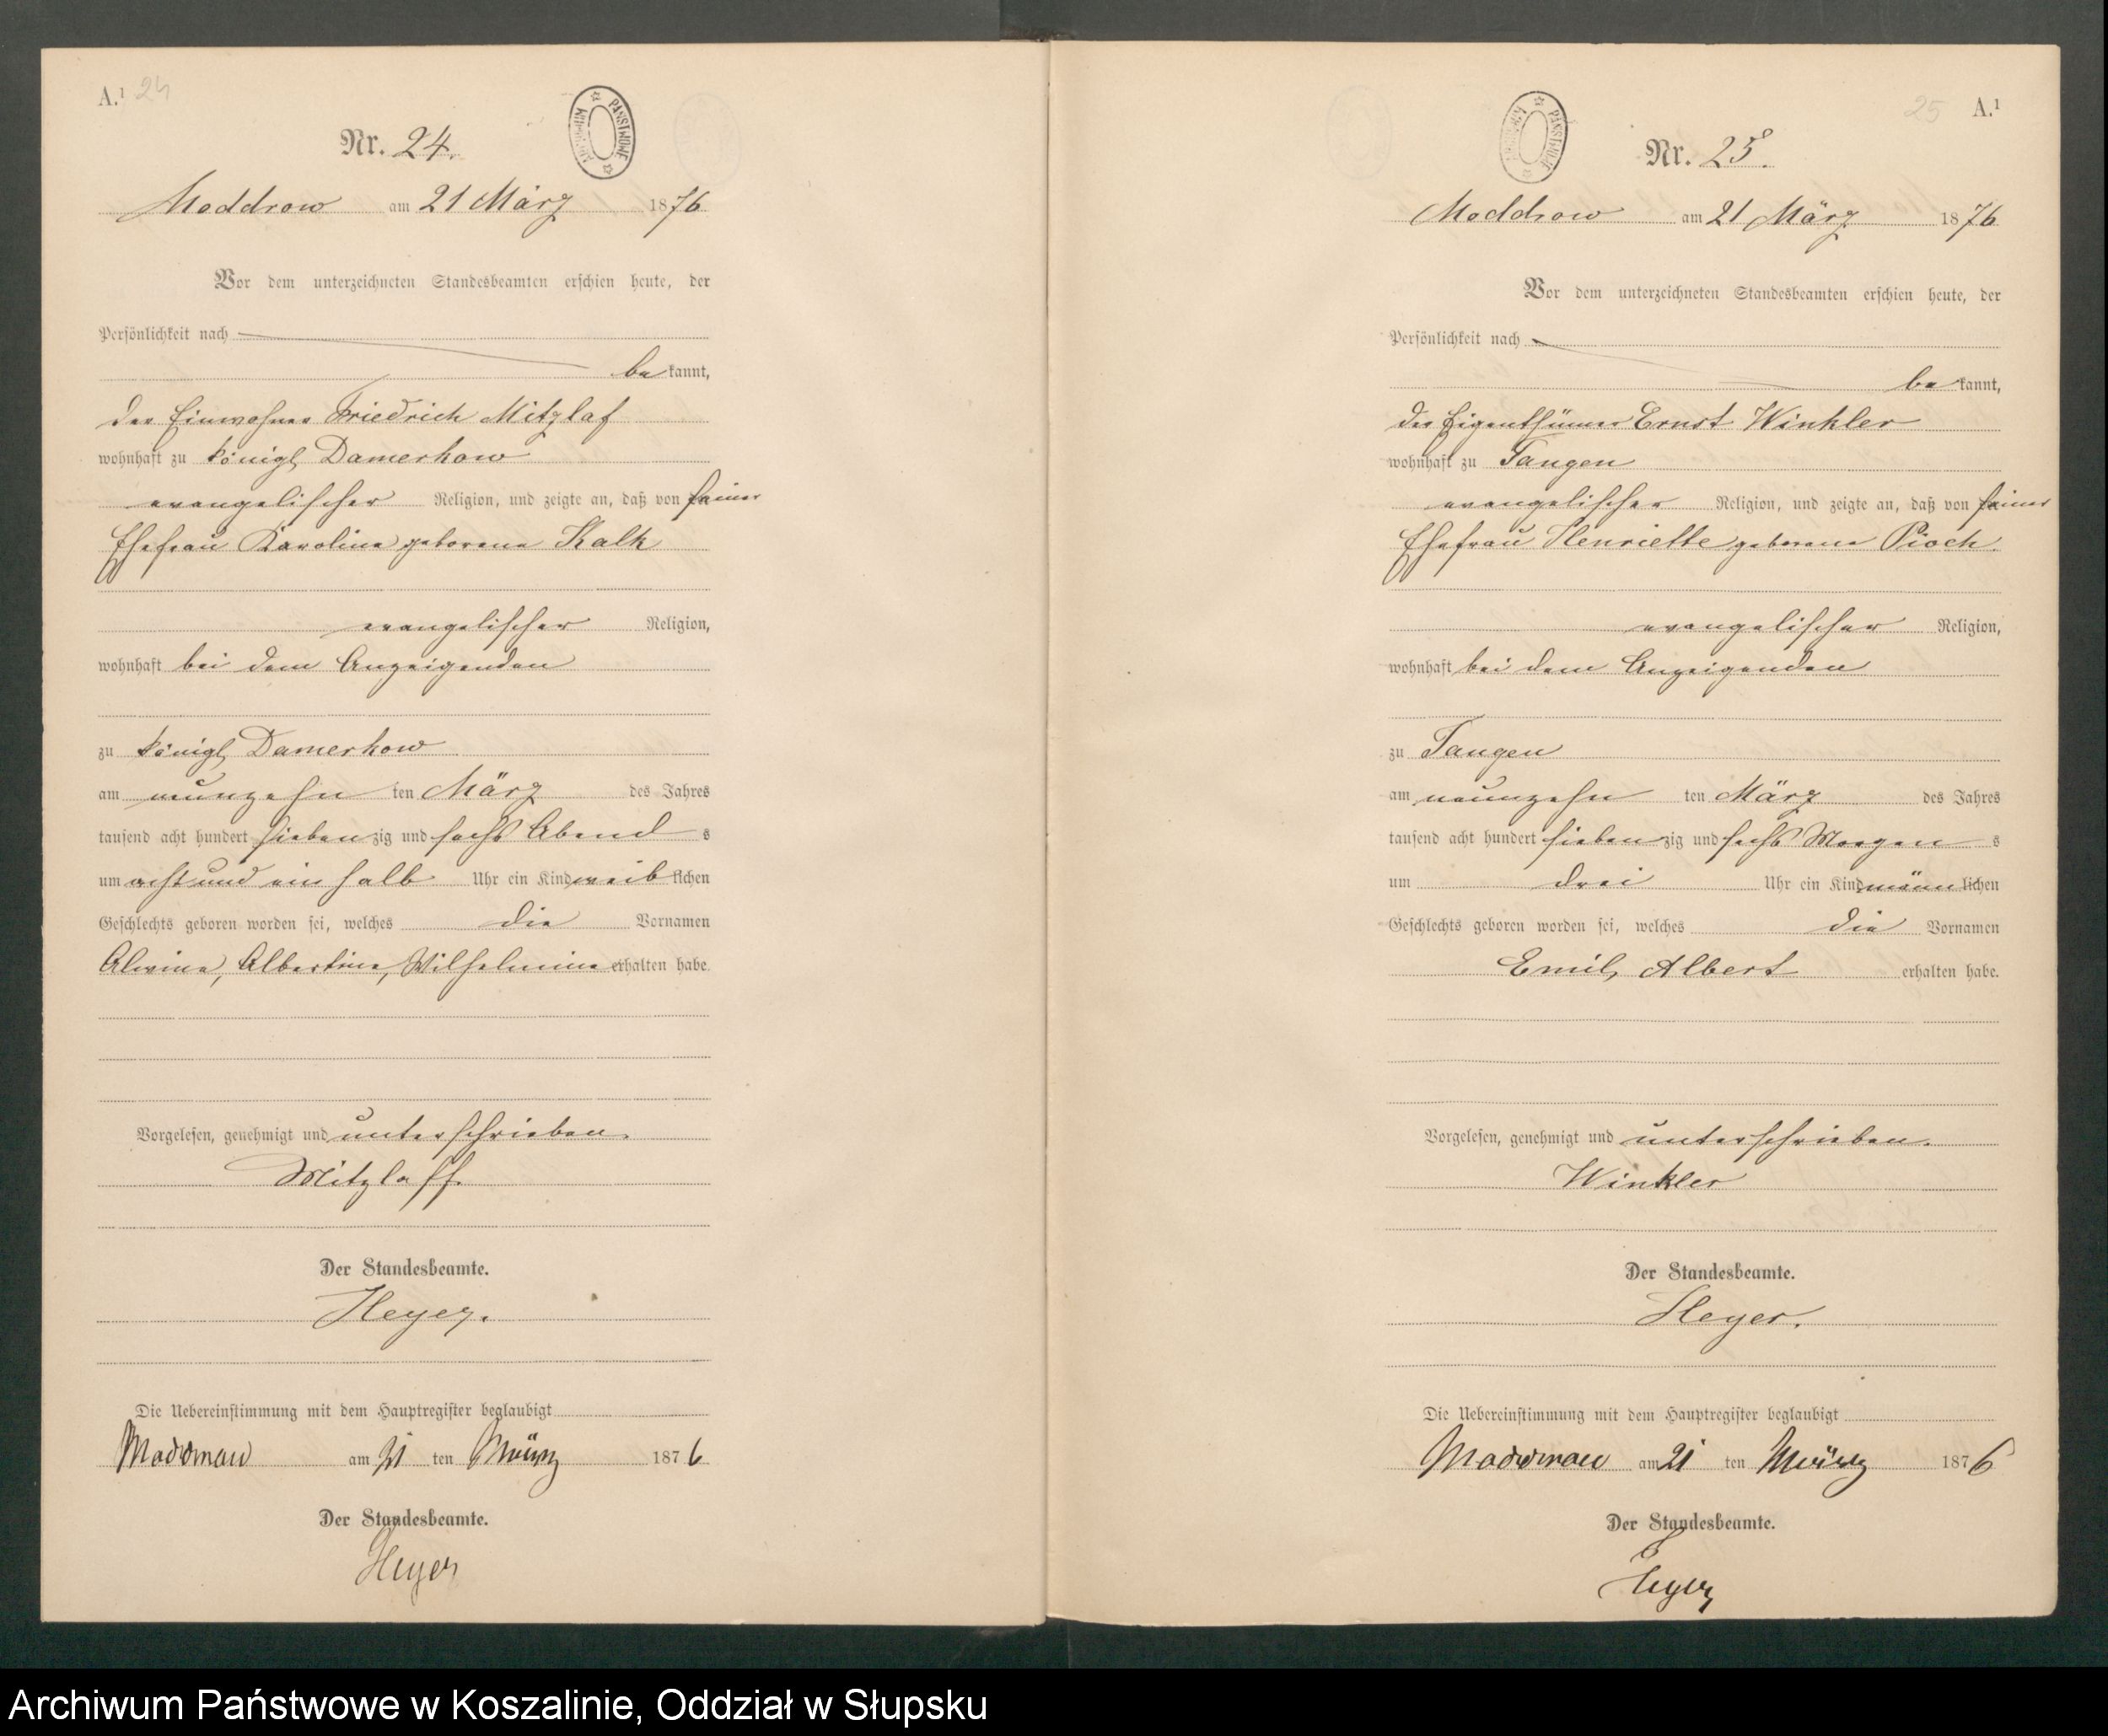 A.¹ 24
Nr. 24.
ARCHIWUM PAŃSTWOWE
Moddrow am 21 März 1876
Vor dem unterzeichneten Standesbeamten erschien heute, der
Persönlichkeit nach
bekannt,
der Einwohner Friedrich Mitzlaf
wohnhaft zu königl. Damerkow
evangelischer Religion, und zeigte an, daß von seiner
Ehefrau Karoline geborene Kalk
evangelischer Religion,
wohnhaft bei dem Anzeigenden
zu königl. Damerkow
am neunzehn ten März des Jahres
tausend acht hundert siebenzig und sechs Abends
um acht und ein halb Uhr ein Kind weiblichen
Geschlechts geboren worden sei, welches die Vornamen
Alwine, Albertine, Wilhelmine erhalten habe.
Vorgelesen, genehmigt und unterschrieben.
Mitzlaff.
Der Standesbeamte.
Heyer.
Die Uebereinstimmung mit dem Hauptregister beglaubigt
Moddrow am 21 ten März 1876
Der Standesbeamte.
Heyer
25 A.¹
ARCHIWUM PAŃSTWOWE
Nr. 25.
Moddrow am 21 März 1876
Vor dem unterzeichneten Standesbeamten erschien heute, der
Persönlichkeit nach
bekannt,
der Eigenthümer Ernst Winkler
wohnhaft zu Tangen
evangelischer Religion, und zeigte an, daß von seiner
Ehefrau Henriette geborene Pioch
evangelischer Religion,
wohnhaft bei dem Anzeigenden
zu Tangen
am neunzehn ten März des Jahres
tausend acht hundert siebenzig und sechs Morgens
um drei Uhr ein Kind männlichen
Geschlechts geboren worden sei, welches die Vornamen
Emil, Albert erhalten habe.
Vorgelesen, genehmigt und unterschrieben.
Winkler
Der Standesbeamte.
Heyer.
Die Uebereinstimmung mit dem Hauptregister beglaubigt
Moddrow am 21 ten März 1876
Der Standesbeamte.
Heyer
Archiwum Państwowe w Koszalinie, Oddział w Słupsku